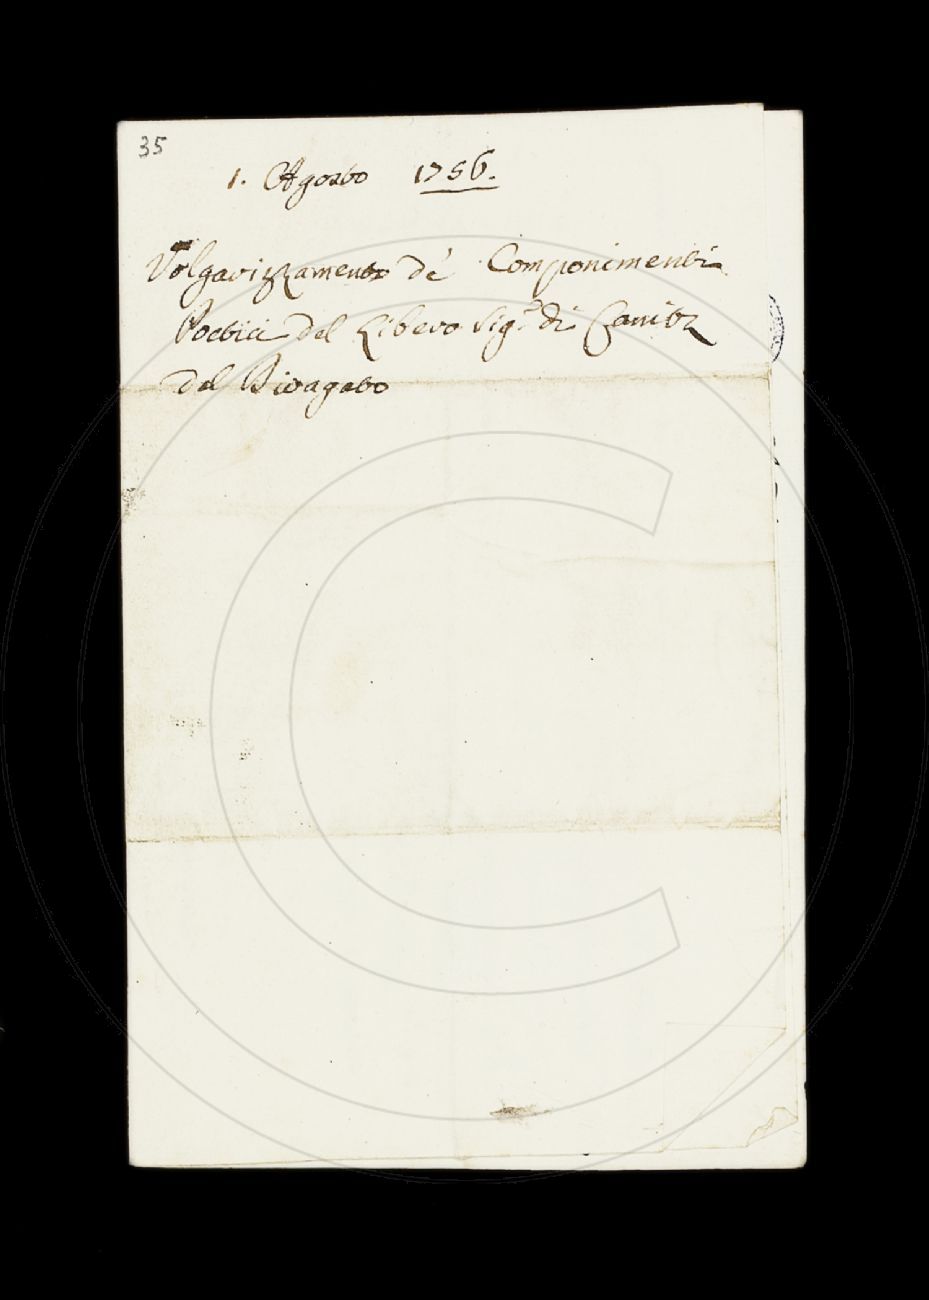 35
1. Agosto 1756.
Volgarizzamento de' Componimenti
Poetici del Libero Sig.r di Canitz
del Pivagato